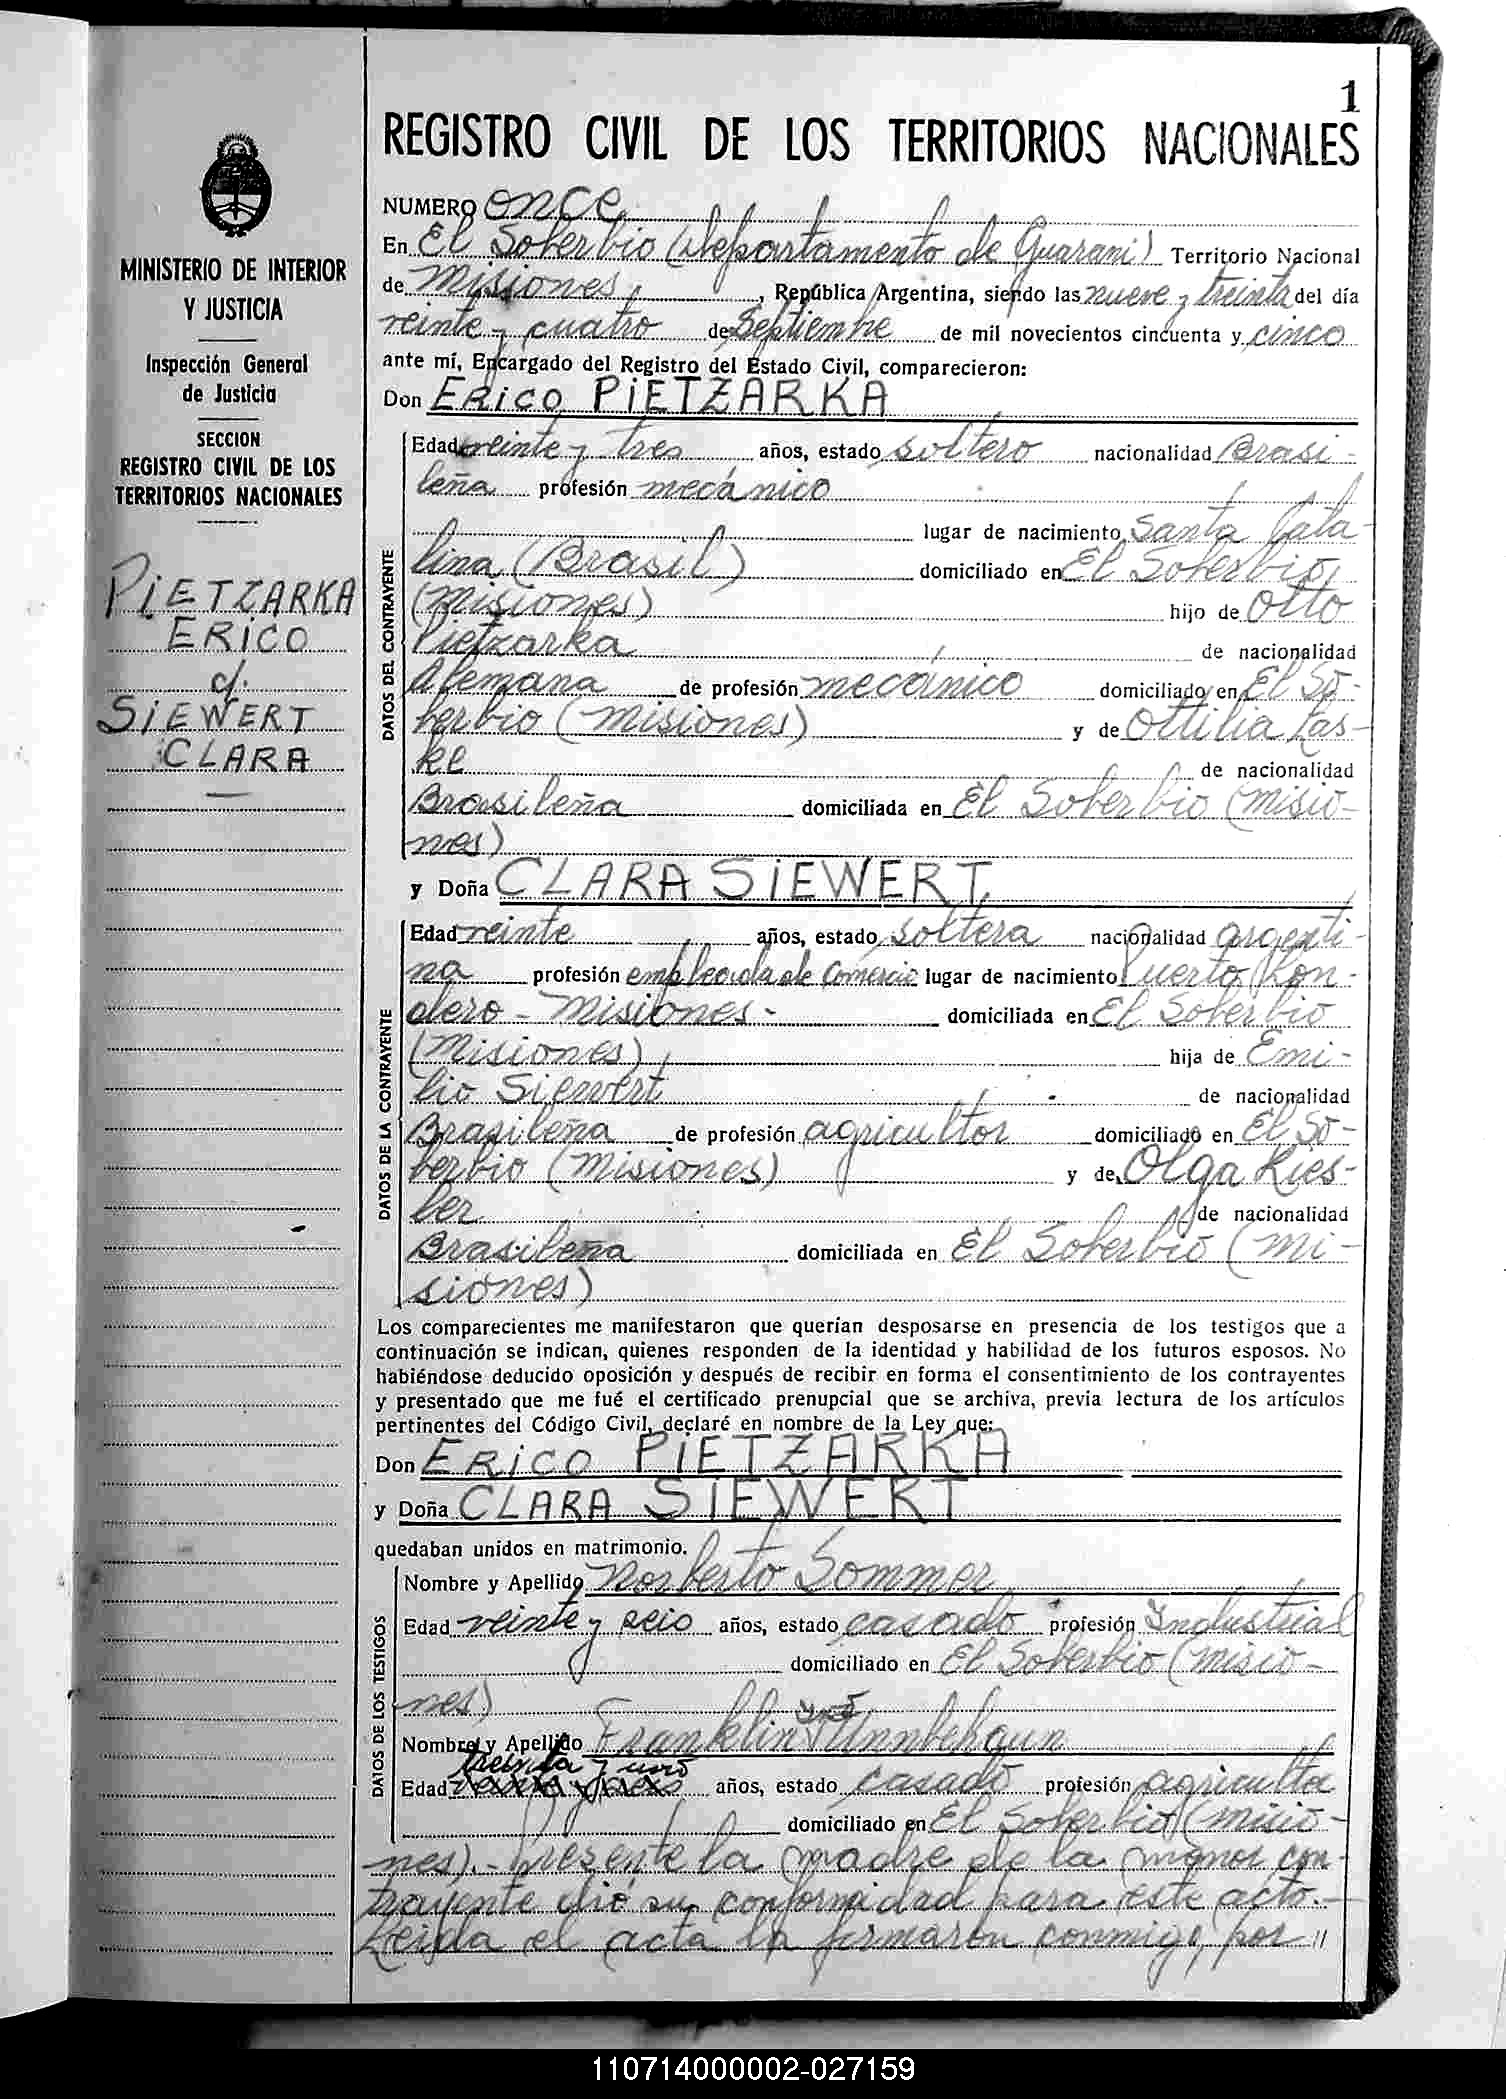 1
REGISTRO CIVIL DE LOS TERRITORIOS NACIONALES
MINISTERIO DE INTERIOR
Y JUSTICIA
Inspección General
de Justicia
SECCION
REGISTRO CIVIL DE LOS
TERRITORIOS NACIONALES
PIETZARKA
ERICO
c/.
SIEWERT
CLARA
NUMERO once
En El Soberbio (departamento de Guarani) Territorio Nacional
de Misiones, República Argentina, siendo las nueve y treinta del día
veinte y cuatro de Septiembre de mil novecientos cincuenta y cinco
ante mí, Encargado del Registro del Estado Civil, comparecieron:
Don ERICO PIETZARKA
DATOS DEL CONTRAYENTE
Edad veinte y tres años, estado soltero nacionalidad Brasi-
leña profesión mecánico
lugar de nacimiento Santa Cata-
lina (Brasil) domiciliado en El Soberbio,
(Misiones) hijo de Otto
Pietzarka de nacionalidad
Alemana de profesión mecánico domiciliado en El So-
berbio (Misiones) y de Ottilia Las-
ke de nacionalidad
Brasileña domiciliada en El Soberbio (Misio-
nes)
y Doña CLARA SIEWERT
DATOS DE LA CONTRAYENTE
Edad veinte años, estado soltera nacionalidad argenti-
na profesión empleada de Comercio lugar de nacimiento Puerto Lon-
dero - Misiones - domiciliada en El Soberbio
(Misiones) hija de Emi-
lio Siewert de nacionalidad
Brasileña de profesión agricultor domiciliado en El So-
berbio (Misiones) y de Olga Ries-
ber de nacionalidad
Brasileña domiciliada en El Soberbio (Mi-
siones)
Los comparecientes me manifestaron que querían desposarse en presencia de los testigos que a
continuación se indican, quienes responden de la identidad y habilidad de los futuros esposos. No
habiéndose deducido oposición y después de recibir en forma el consentimiento de los contrayentes
y presentado que me fué el certificado prenupcial que se archiva, previa lectura de los artículos
pertinentes del Código Civil, declaré en nombre de la Ley que:
Don ERICO PIETZARKA
y Doña CLARA SIEWERT
quedaban unidos en matrimonio.
DATOS DE LOS TESTIGOS
Nombre y Apellido Norberto Sommer
Edad veinte y seis años, estado casado profesión Industrial
domiciliado en El Soberbio (Misio-
nes)
Nombre y Apellido Franklin Unnbehaun
treinta y uno
Edad años, estado casado profesión agriculto
domiciliado en El Soberbio (Misio-
nes).- Presente la madre de la menor con-
trayente dió su conformidad para este acto.-
Leida el acta la firmaron conmigo, por //
110714000002-027159